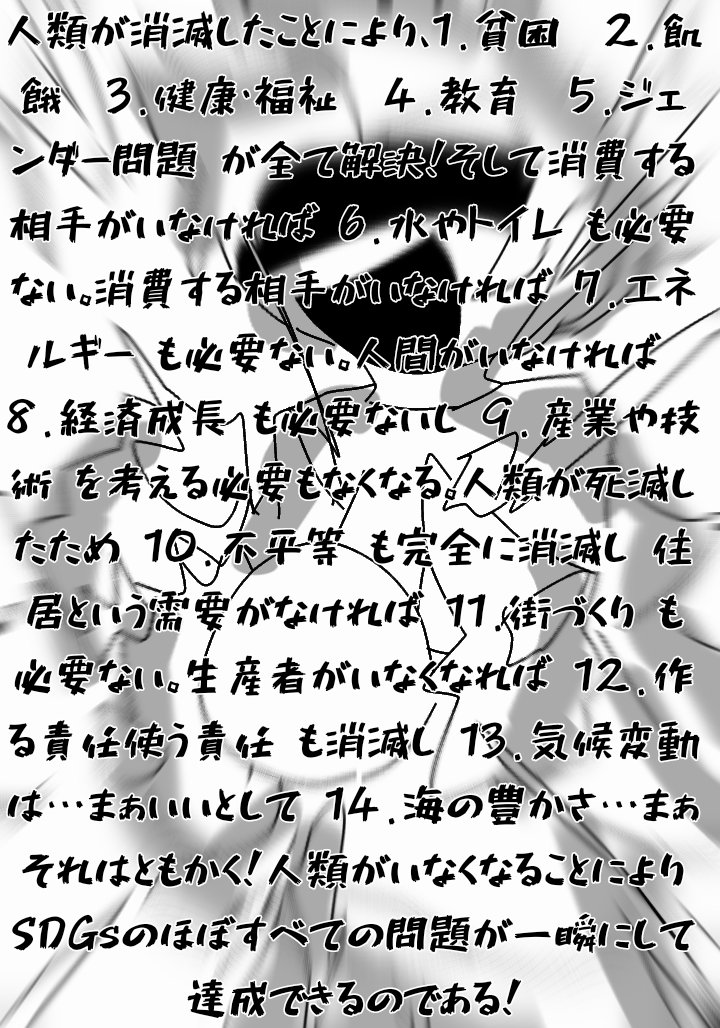 人類が消滅したことにより、1.貧困 2.飢
餓 3.健康・福祉 4.教育 5.ジェ
ンダー問題 が全て解決!そして消費する
相手がいなければ 6.水やトイレ も必要
ない。消費する相手がいなければ 7.エネ
ルギー も必要ない。人間がいなければ
8.経済成長 も必要ないし 9.産業や技
術 を考える必要もなくなる。人類が死滅し
たため 10.不平等 も完全に消滅し 住
居という需要がなければ 11.街づくり も
必要ない。生産者がいなくなれば 12.作
る責任使う責任 も消滅し 13.気候変動
は…まぁいいとして 14.海の豊かさ…まぁ
それはともかく!人類がいなくなることにより
SDGsのほぼすべての問題が一瞬にして
達成できるのである!